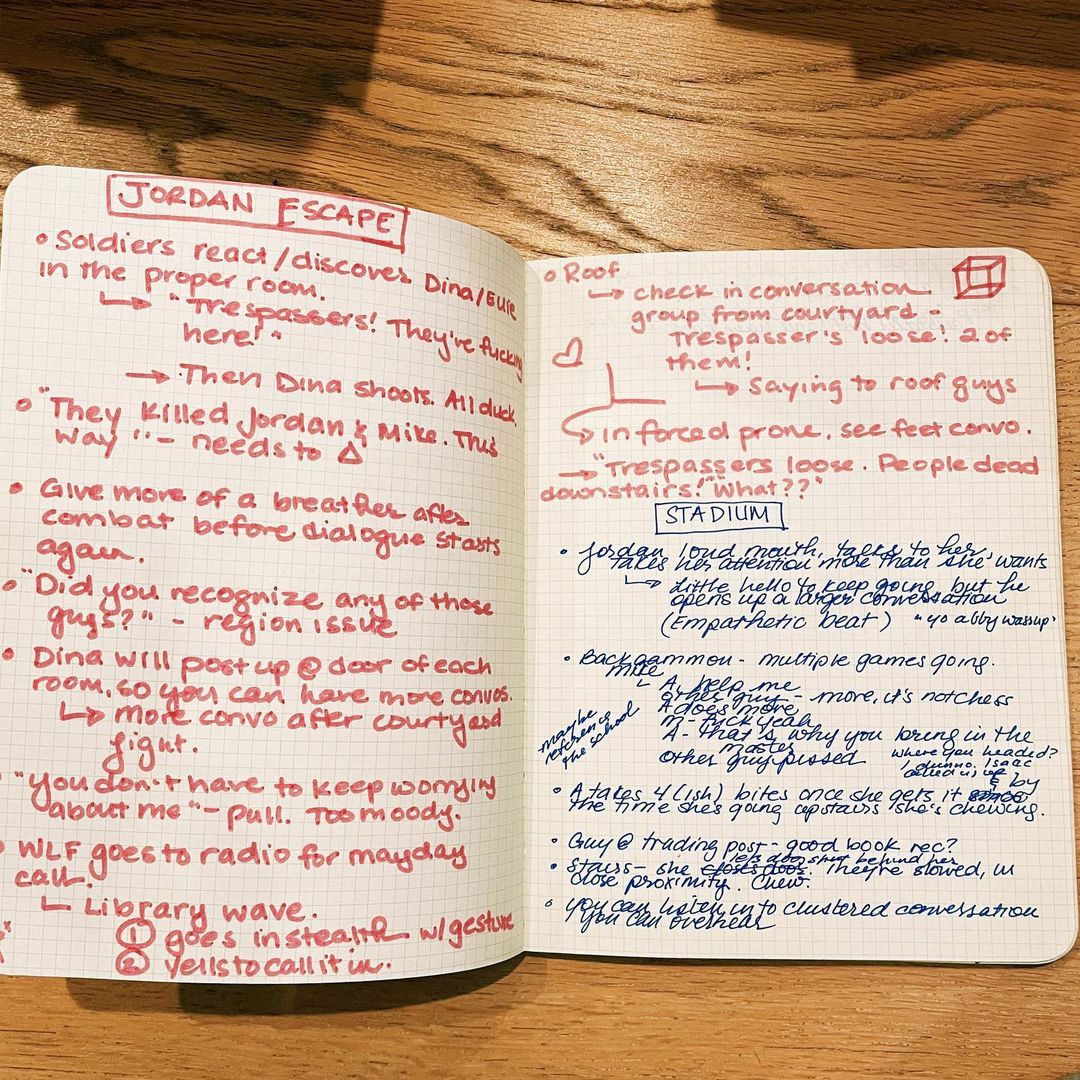 JORDAN ESCAPE
• Soldiers react/discovers Dina/Ellie
in the proper room.
↳ "Trespassers! They're fucking
here!"
→ Then Dina shoots. All duck.
• "They killed Jordan & Mike. This
way" - needs to Δ
• Give more of a breather after
combat before dialogue starts
again.
• "Did you recognize any of those
guys?" - region issue
• Dina will post up @ door of each
room, so you can have more convos.
↳ more convo after courtyard
fight.
"You don't have to keep worrying
about me" - pull. Too moody.
• WLF goes to radio for mayday
call.
↳ Library wave.
① goes in stealth w/gesture
② yells to call it in.
• Roof
↳ check in conversation.
group from courtyard -
Trespasser's loose! 2 of
them!
↳ saying to roof guys
↳ in forced prone, see feet convo.
→ "Trespassers loose. People dead
downstairs!" "What??"
STADIUM
• Jordan loud mouth, talks to her,
takes her attention more than she wants
↳ Little hello to keep going, but he
opens up a larger conversation
(Empathetic beat) "yo abby wassup"
• Backgammon - multiple games going.
mike
↳ A, help me
other guy - more, it's not chess
A does more
M - fuck yeah
A - that's why you bring in the
master
other guy pissed
maybe
reference
the school
where you headed?
I dunno. Isaac
called us up
• A takes 4(ish) bites once she gets it & by
the time she's going upstairs she's chewing.
• Guy @ trading post - good book rec?
lets door shut behind her
• Stairs - she closes door. They're slowed, in
close proximity. Chew.
• You can listen in to clustered conversation
you can overhear